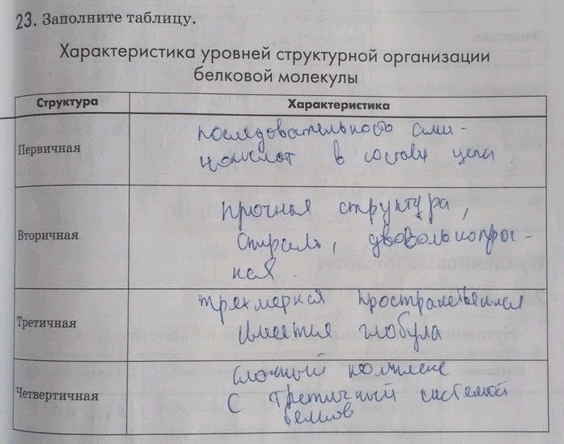 23. Заполните таблицу.
Характеристика уровней структурной организации
белковой молекулы
Структура
Характеристика
Первичная
последовательность ами-
нокислот в составе цепи
Вторичная
прочная структура,
спираль, довольно проч-
ная.
Третичная
трехмерная пространственная
имеется глобула
Четвертичная
сложный комплекс
с третичной системой
белков